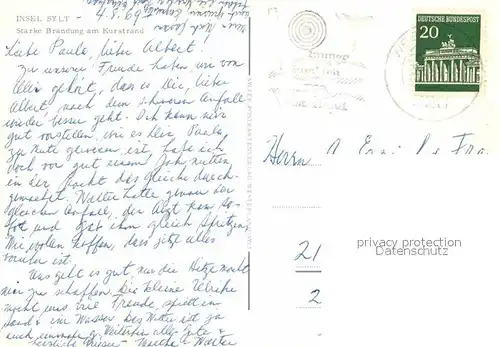 INSEL SYLT -
4.8.69
Starke Brandung am Kurstrand
Liebe Paula, lieber Albert!
Zu unserer Freude haben wir von
gehört, dass es Dir, lieber
Albert, nach dem schweren Anfalle
wieder besser geht. Ich kann mir
gut vorstellen, wie es Dir, Paula,
zu Mute gewesen ist, habe ich
doch vor gut einem Jahr mitten
in der Nacht das gleiche durch-
gemacht. Walter hatte genau den
gleichen Anfall, der Arzt kam so-
fort und gab ihm gleich Spritzen.
Wir wollen hoffen, dass jetzt alles
vorüber ist.
Uns geht es gut, nur die Hitze macht
mir zu schaffen. Die kleine Ulrike
macht uns viel Freude, spielt im
Sand & im Wasser. Das Wetter ist ja
auch Weiterhin alles Gute &
herzliche Grüsse Martha & Walter
DEUTSCHE BUNDESPOST
20
Herrn
21
2
privacy protection
Datenschutz